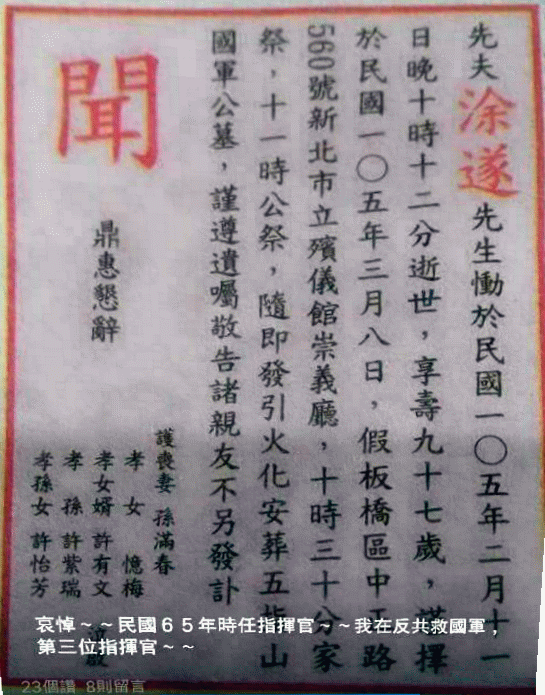 先夫涂遂先生慟於民國一〇五年二月十一
日晚十時十二分逝世，享壽九十七歲，謹擇
於民國一〇五年三月八日，假板橋區中正路
560號新北市立殯儀館崇義廳，十時三十分家
祭，十一時公祭，隨即發引火化安葬五指山
國軍公墓，謹遵遺囑敬告諸親友不另發訃
聞
鼎惠懇辭
護喪妻 孫滿春
孝女 憶梅
孝女婿 許有文
孝孫 許紫瑞
孝孫女 許怡芳
哀悼～～民國６５年時任指揮官～～我在反共救國軍，
第三位指揮官～～
23個讚 8則留言